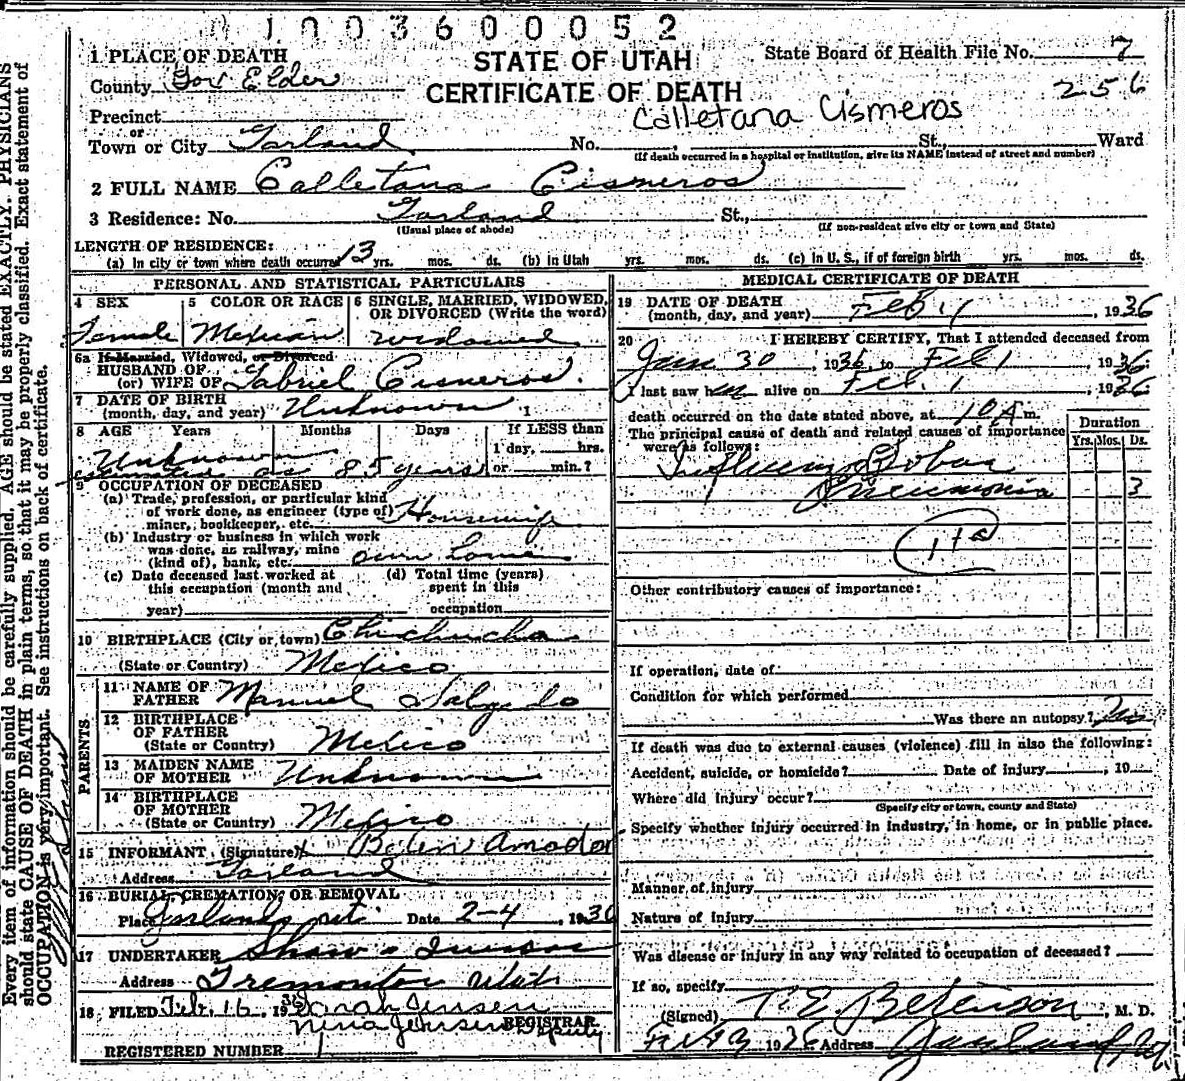 0 1 0 0 3 6 0 0 0 5 2
1 PLACE OF DEATH
County Box Elder
Precinct
or
Town or City Garland No. St., Ward
STATE OF UTAH
CERTIFICATE OF DEATH
State Board of Health File No. 7
256
Calletana Cismeros
(If death occurred in a hospital or institution, give its NAME instead of street and number)
2 FULL NAME Calletana Cismeros
3 Residence: No. Garland St.,
(Usual place of abode) (If non-resident give city or town and State)
LENGTH OF RESIDENCE:
(a) In city or town where death occurred 13 yrs. mos. ds. (b) in Utah yrs. mos. ds. (c) in U. S., if of foreign birth yrs. mos. ds.
PERSONAL AND STATISTICAL PARTICULARS
4 SEX Female
5 COLOR OR RACE Mexican
6 SINGLE, MARRIED, WIDOWED, OR DIVORCED (Write the word) widowed
6a If Married, Widowed, or Divorced
HUSBAND OF
(or) WIFE OF Gabriel Cisneros.
7 DATE OF BIRTH
(month, day, and year) Unknown 1
8 AGE Years Months Days If LESS than
1 day, hrs.
or min.?
Unknown
as 85 years
9 OCCUPATION OF DECEASED
(a) Trade, profession, or particular kind
of work done, as engineer (type of)
miner, bookkeeper, etc. Housewife
(b) Industry or business in which work
was done, as railway, mine
(kind of), bank, etc. own home
(c) Date deceased last worked at
this occupation (month and
year)
(d) Total time (years)
spent in this
occupation
10 BIRTHPLACE (City or town)
(State or Country) Mexico
PARENTS
11 NAME OF
FATHER Manuel Salgado
12 BIRTHPLACE
OF FATHER
(State or Country) Mexico
13 MAIDEN NAME
OF MOTHER Unknown
14 BIRTHPLACE
OF MOTHER
(State or Country) Mexico
15 INFORMANT (Signature) Belen Amador
Address Garland
16 BURIAL, CREMATION, OR REMOVAL
Place Garland Date 2-4, 1936
17 UNDERTAKER Shaw
Address Tremonton Utah
18 FILED Feb. 16 1936 Norah Jensen
Nina Jensen Deputy
REGISTRAR
REGISTERED NUMBER 1
MEDICAL CERTIFICATE OF DEATH
19 DATE OF DEATH
(month, day, and year) Feb 1, 1936
20 I HEREBY CERTIFY, That I attended deceased from
Jan 30, 1936, to Feb 1, 1936
I last saw h alive on Feb. 1, 1936
death occurred on the date stated above, at 10 A m.
The principal cause of death and related causes of importance
were as follows:
Duration
Yrs. Mos. Ds.
Influenza Lobar
Pneumonia 3
11a
Other contributory causes of importance:
If operation, date of
Condition for which performed
Was there an autopsy? No
If death was due to external causes (violence) fill in also the following:
Accident, suicide, or homicide? Date of injury , 19
Where did injury occur?
(Specify city or town, county and State)
Specify whether injury occurred in industry, in home, or in public place.
Manner of injury
Nature of injury
Was disease or injury in any way related to occupation of deceased?
If so, specify
(Signed) T. E. Betenson, M. D.
1936 Address Garland, Ut.
Every item of information should be carefully supplied. AGE should be stated EXACTLY. PHYSICIANS
should state CAUSE OF DEATH in plain terms, so that it may be properly classified. Exact statement of
OCCUPATION is very important. See instructions on back of certificate.